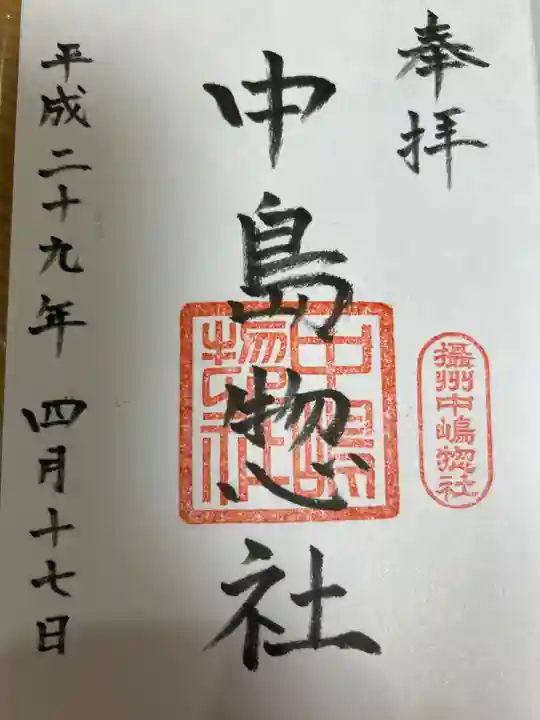 奉拝
攝州中嶋惣社
中島惣社
中嶋惣社
平成二十九年 四月十七日